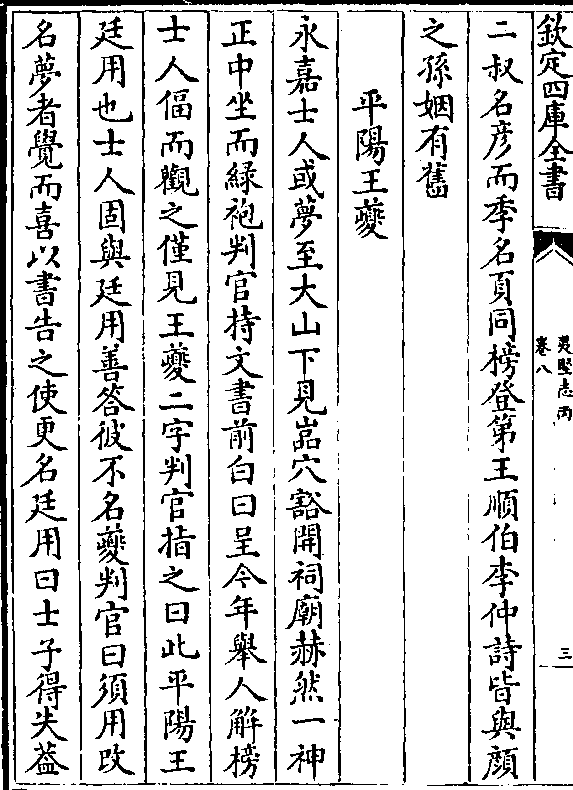 欽定四庫全書
夷堅志丙
卷八
三
二叔名彥而季名頁同榜登第王順伯李仲詩皆與顔
之孫姻有舊
平陽王夔
永嘉士人或夢至大山下見巖穴豁開祠廟赫然一神
正中坐而緑袍判官持文書前白曰呈今年舉人解榜
士人偪而觀之僅見王夔二字判官指之曰此平陽王
廷用也士人固與廷用善答彼不名夔判官曰須用改
名夢者覺而喜以書告之使更名廷用曰士子得失葢